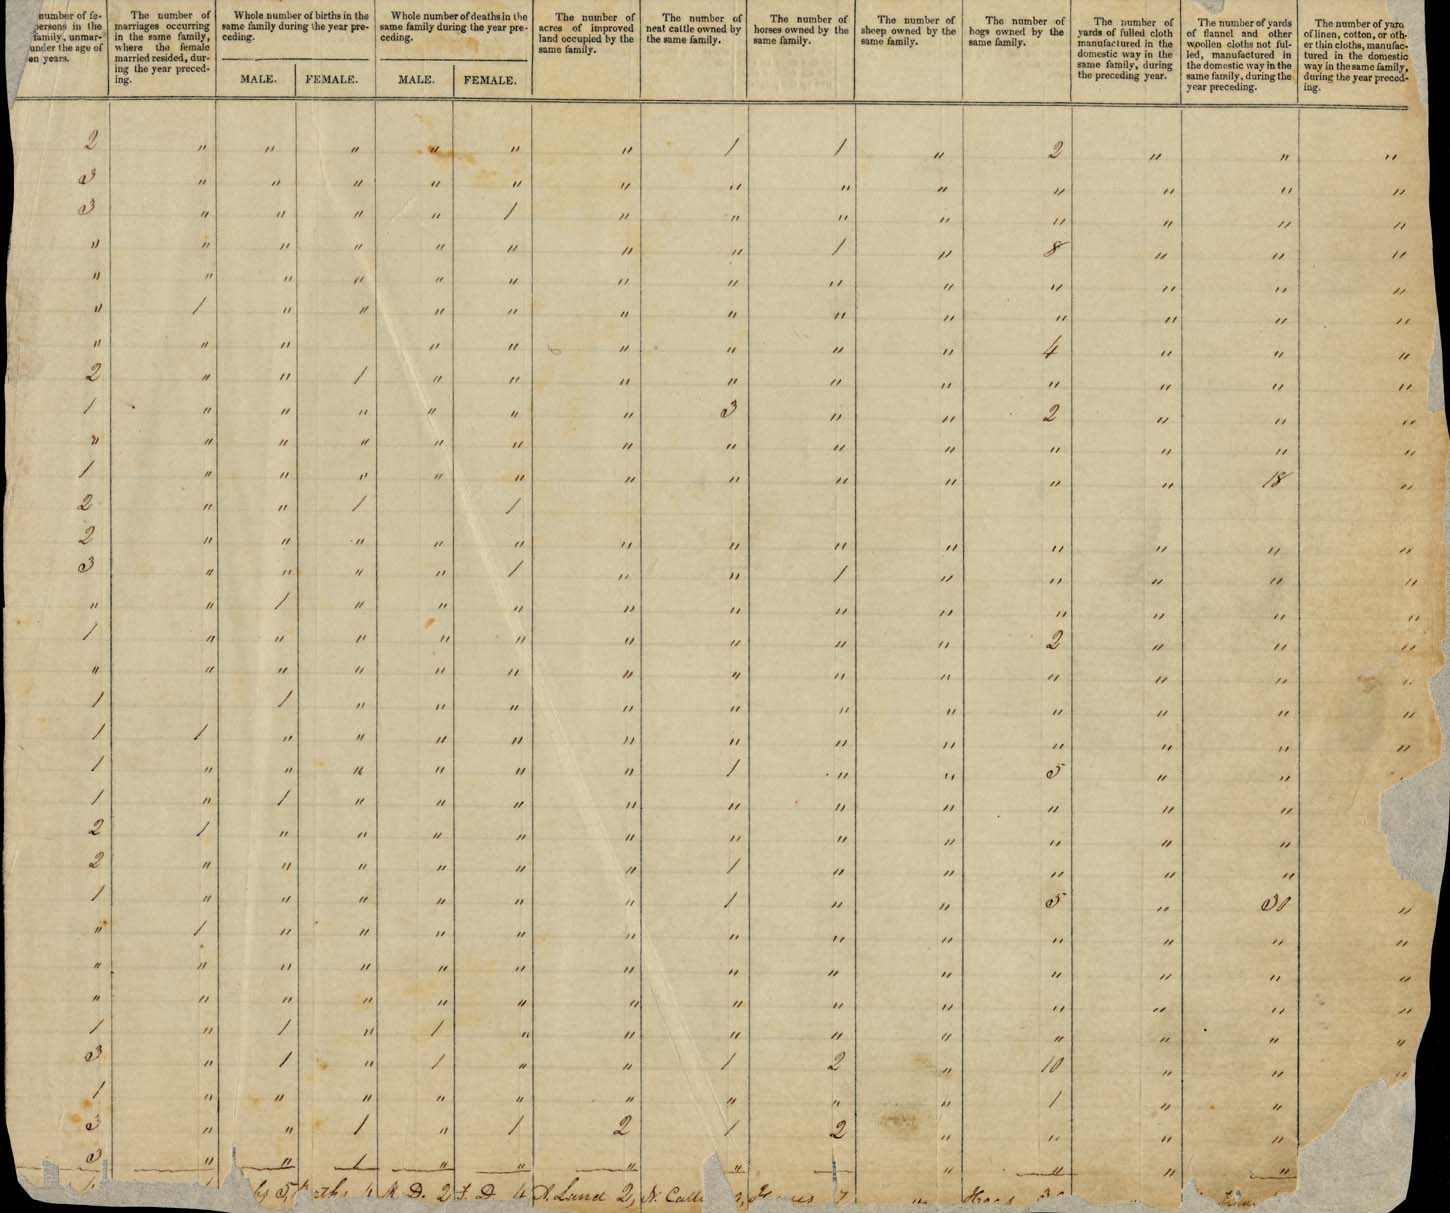 number of fe-
persons in the
family, unmar-
under the age of
en years.
The number of
marriages occurring
in the same family,
where the female
married resided, dur-
ing the year preced-
ing.
Whole number of births in the
same family during the year pre-
ceding.
MALE. FEMALE.
Whole number of deaths in the
same family during the year pre-
ceding.
MALE. FEMALE.
The number of
acres of improved
land occupied by the
same family.
The number of
neat cattle owned by
the same family.
The number of
horses owned by the
same family.
The number of
sheep owned by the
same family.
The number of
hogs owned by the
same family.
The number of
yards of fulled cloth
manufactured in the
domestic way in the
same family, during
the preceding year.
The number of yards
of flannel and other
woollen cloths not ful-
led, manufactured in
the domestic way in the
same family, during the
year preceding.
The number of yard
of linen, cotton, or oth-
er thin cloths, manufac-
tured in the domestic
way in the same family,
during the year preced-
ing.
2 " " " " " " 1 1 " 2 " " "
3 " " " " " " " " " " " " "
3 " " " " 1 " " " " " " " "
" " " " " " " " 1 " 8 " " "
" " " " " " " " " " " " " "
" 1 " " " " " " " " " " " "
" " " " " " " " " 4 " " "
2 " " 1 " " " " " " " " " "
1 " " " " " " 3 " " 2 " " "
" " " " " " " " " " " " " "
1 " " " " " " " " " " " 18 "
2 " " 1 1
2 " " " " " " " " " " " " "
3 " " " " 1 " " 1 " " " " "
" " 1 " " " " " " " " " " "
1 " " " " " " " " " 2 " " "
" " " " " " " " " " " " " "
1 " 1 " " " " " " " " " " "
1 1 " " " " " " " " " " " "
1 " " " " " " 1 " " 5 " "
1 " 1 " " " " " " " " " "
2 1 " " " " " " " " " " "
2 " " " " " " 1 " " " " "
1 " " " " " " 1 " " 5 " 30 "
" 1 " " " " " " " " " " " "
" " " " " " " " " " " " " "
" " " " " " " " " " " " " "
1 " 1 " 1 " " " " " " " " "
3 " 1 " 1 " " 1 2 " 10 " " "
1 " " " " " " " " " 1 " "
3 " " 1 " 1 2 1 2 " " " "
3 " " 1 " " " " " " " "
5, 4 M. D. 2 F. D. 4 A. Land 2, N. Catt 7 "